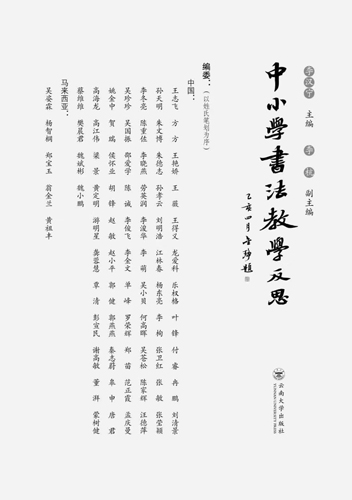 李汉宁 主编 李 副主编
中小學書法教學反思
四月 題
云南大学出版社
YUNNAN UNIVERSITY PRESS
编委：（以姓氏笔划为序）
中国：
王志飞 方 方 王艳娇 王 葳 王得义 龙爱科 乐权格 叶 锋 付 睿 冉 鹏 刘清景
孙天明 朱文博 朱德志 孙孝云 刘明浩 江林春 杨东亮 李 枸 张卫红 张 敏 张莹颖
李冬亮 陈重佐 李晓燕 劳英润 李浚华 李 萌 吴小贝 何高晖 吴苍松 陈家辉 汪德萍
吴珍珍 吴国振 邵爱学 陈 诚 李俊飞 李金文 单 峰 罗荣辉 郑 苗 范正霞 孟庆曼
姚金中 贺 瑞 侯怀亚 胡 锋 赵 敏 赵小平 郭 健 郭燕燕 秦志蔚 皋 申 唐 君
高海龙 高江伟 梁 景 黄定明 游明星 龚蓉慧 覃 清 彭宣民 谢高敏 董 湃 蒙树健
蔡维维 樊晨君 魏斌彬 魏小鹏
马来西亚：
吴姿霖 杨智桐 郑宝玉 翁金兰 黄祖丰